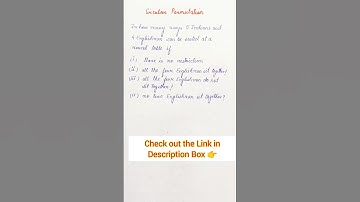 Circular Permutation
In how many ways 5 Indians and
4 Englishmen can be seated at a
round table if
(i) there is no restriction
(ii) all the four Englishmen sit together?
(iii) all the four Englishmen do not
sit together?
(iv) no two Englishmen sit together?
Check out the Link in
Description Box 👉